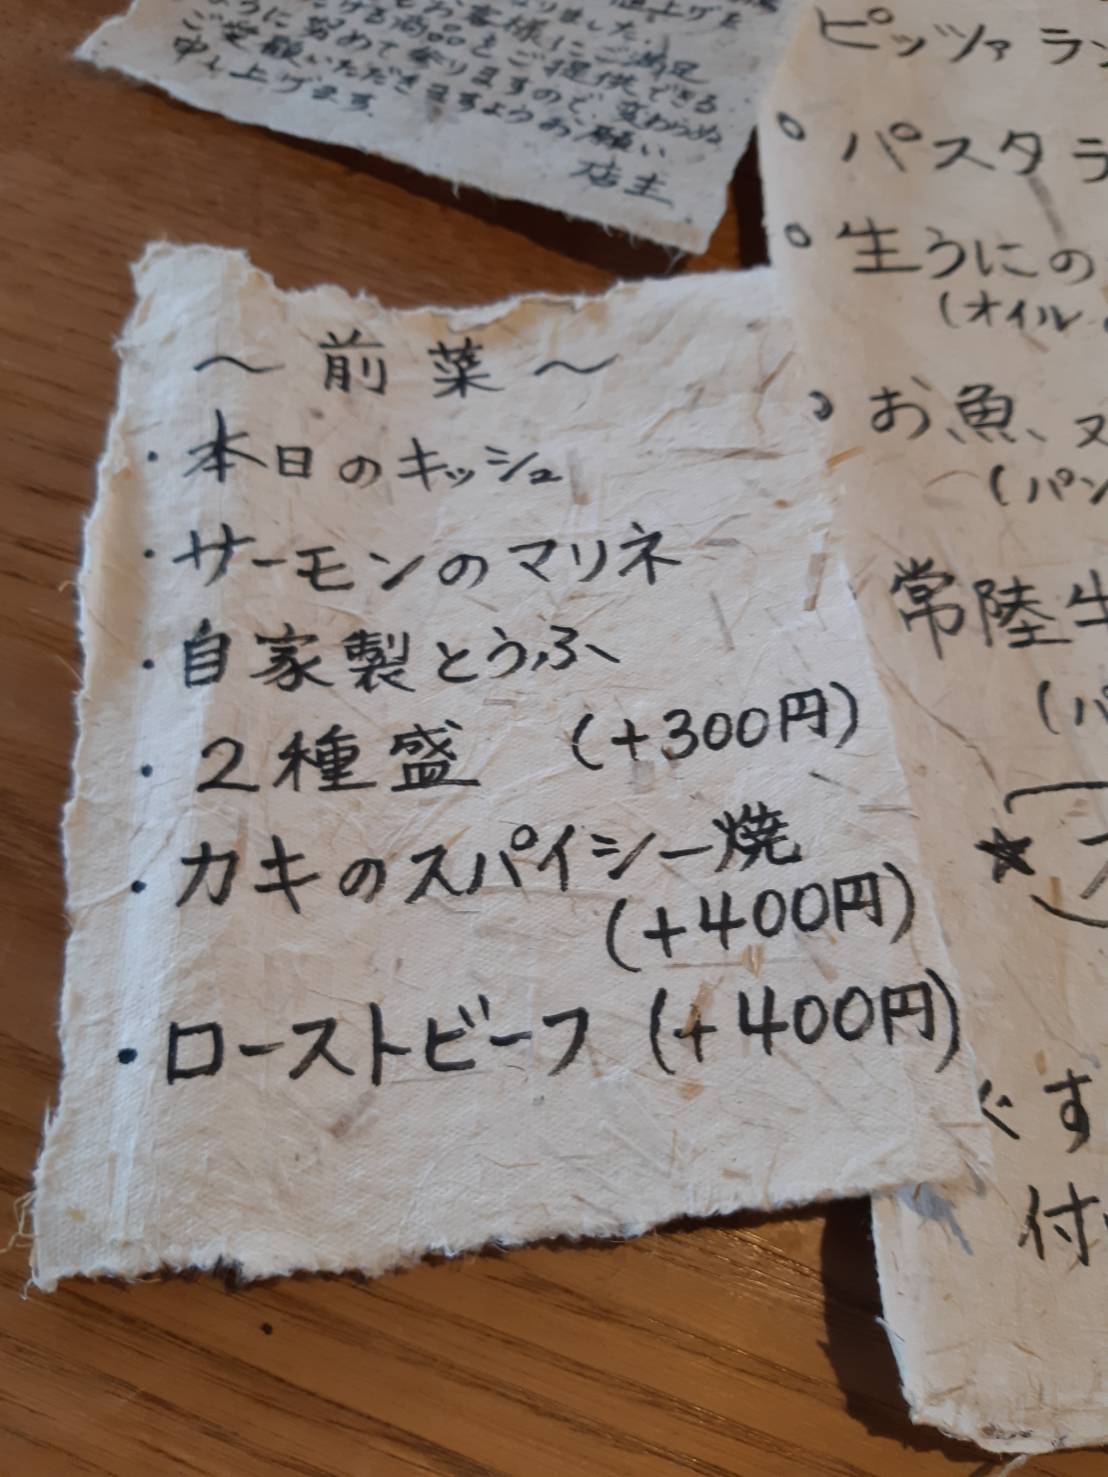 お客様にご満足
る商品をご提供できる
ように努めて参りますので、変わらぬ
ご愛顧いただきますようお願い
申し上げます。
店主
〜前菜〜
・本日のキッシュ
・サーモンのマリネ
・自家製とうふ
・2種盛 (+300円)
・カキのスパイシー焼
(+400円)
・ローストビーフ (+400円)
ピッツァラン
。パスタラ
。生うにの
(オイル
。お魚、ヌ
(パン
常陸牛
(パ
★
ぐす
付